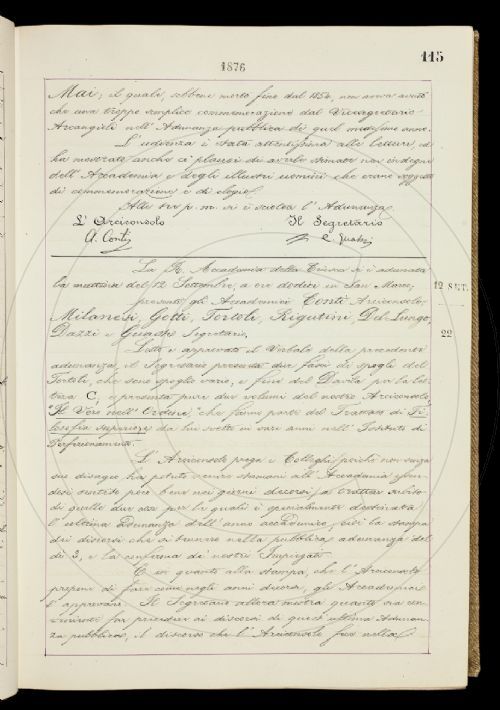 115
1876
Mai; il quale, sebbene morto fino dal 1854, non aveva avuto
che una troppo semplice commemorazione dal Vicesegretario
Arcangioli nell'Adunanza pubblica di quel medesimo anno.
L'udienza è stata attentissima alle letture, ed
ha mostrato anche co' plausi di averle stimate non indegne
dell'Accademia e degli illustri uomini che erano soggetto
di commemorazione e di elogio.
Alle p. m. si è sciolta l'Adunanza.
L'Arciconsolo Il Segretario
A. Conti C. Guasti
La R. Accademia della Crusca si è adunata
la mattina del 12 Settembre, a ore dodici in San Marco,
12 SET.
presenti gli Accademici Conti Arciconsolo,
Milanesi, Gotti, Tortoli, Rigutini, Del Lungo,
Dazzi e Guasti Segretario.
22
Letto e approvato il Verbale della precedente
adunanza, il Segretario presenta due fasci di spogli del
Tortoli, che sono spoglio vario, e fine del Davila per la let-
tera C; e presenta pure due volumi del nostro Arciconsolo,
"Il Vero nell'Ordine," che fanno parte del Trattato di Fi-
losofia superiore da lui svolto in vari anni nell'Istituto di
Perfezionamento.
L'Arciconsolo prega i Colleghi, poichè non senza
suo disagio ha potuto venire stamani all'Accademia
bene nei giorni decorsi, a trattar subito
di quelle due cose per le quali è specialmente destinata
l'ultima Adunanza dell'anno accademico, cioè la stampa
dei discorsi che si tennero nella pubblica adunanza del
dì 3, e la conferma de' nostri Impiegati.
E in quanto alla stampa, che l'Arciconsolo
propone di fare come negli anni decorsi, gli Accademici
l'approvano. Il Segretario allora mostra quanto sia con-
veniente far precedere ai discorsi di quest'ultima Adunan-
za pubblica, il discorso che l'Arciconsolo fece nella